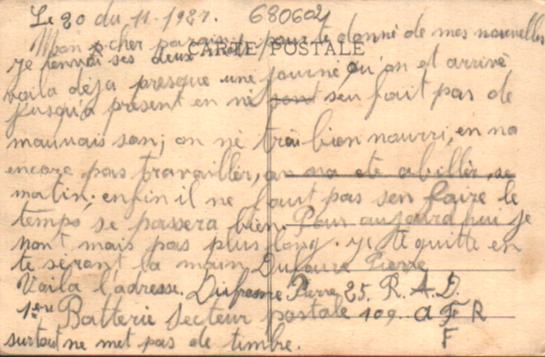 Le 20 du 11. 1921. 680602
Mon cher parain, pour te donné de mes nouvelles
CARTE POSTALE
je t'envoi ses deux mots
voila déja presque une journé qu'on et arrivé
jusqu'à présent en né pont seu fait pas de
mauvais san; on né trai bien nourri, en na
encore pas travailler, on na ete abiller, se
matin; enfin il ne faut pas sen faire le
temps se passera bien. Pour aujourd hui je
nont, mais pas plus long. je te quitte en
te sérant la main Dufoure Pierre
Voila l'adresse. Pierre 35. R. A. D.
1ere Batterie Secteur postale 109. A F R
F
surtout ne met pas de timbre.